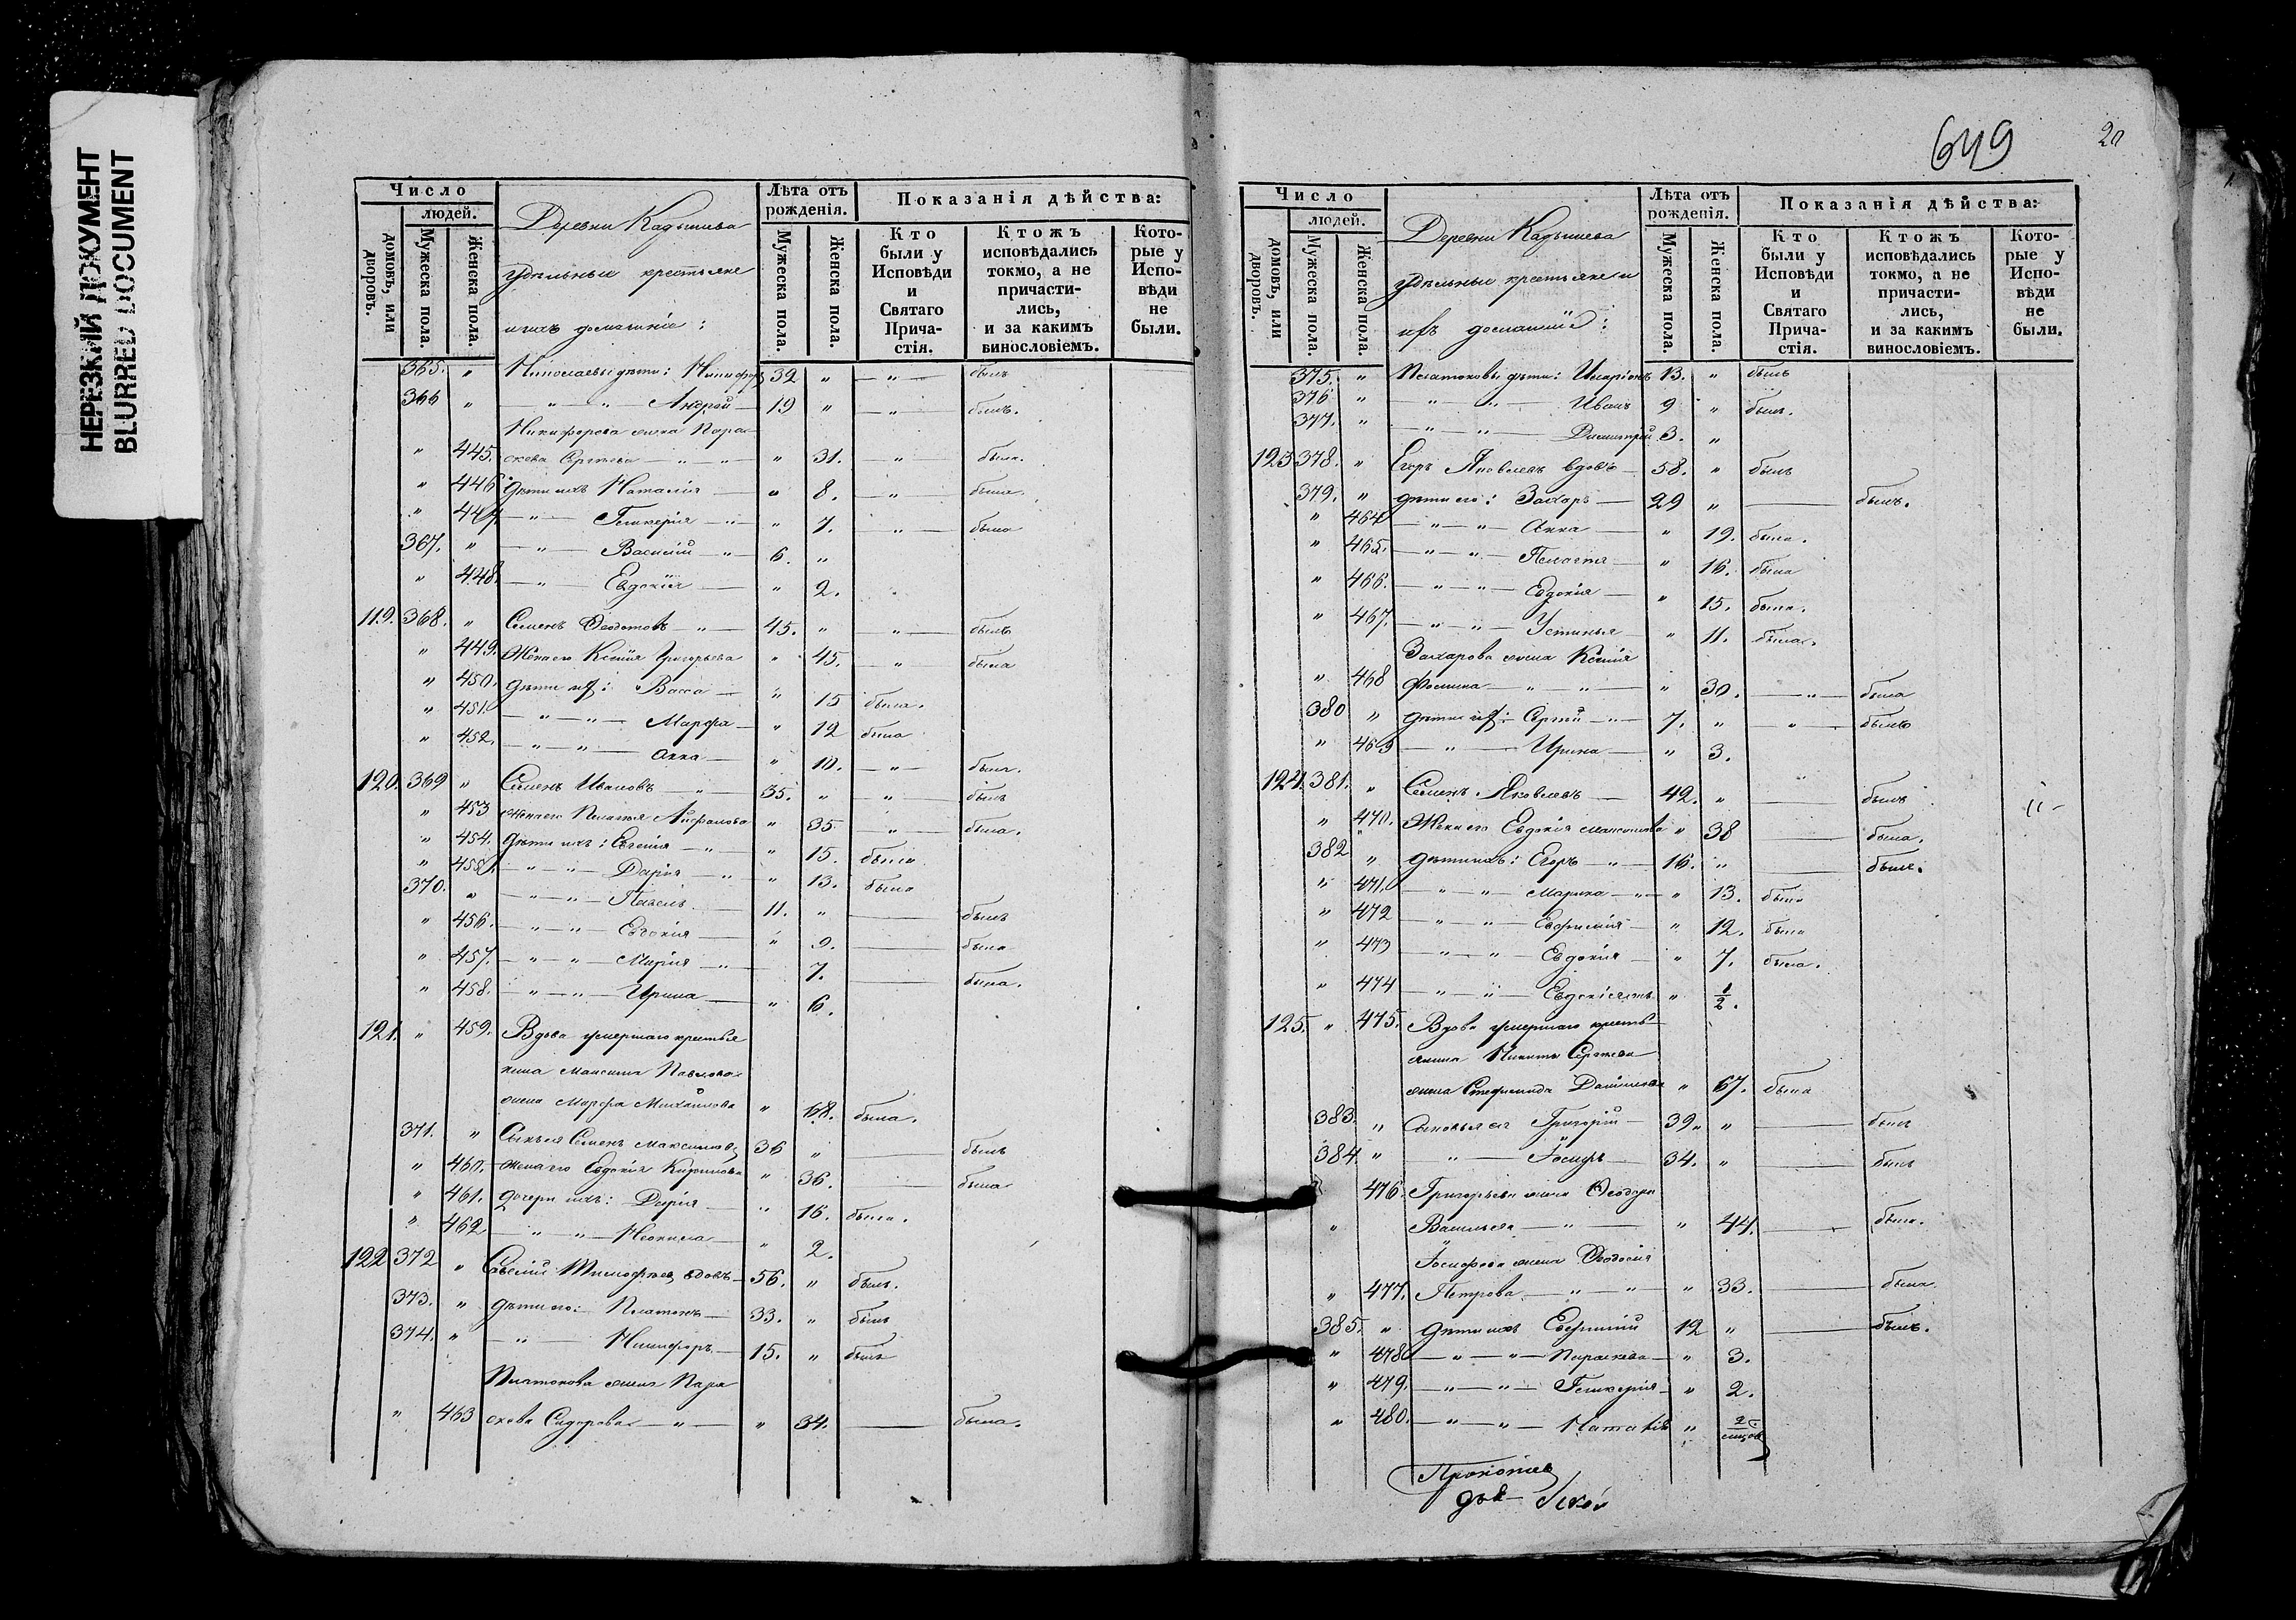 НЕРЕЗКИЙ ДОКУМЕНТ
BLURRED DOCUMENT
Число
людей.
домовъ, или дворовъ.
Мужеска пола.
Женска пола.
Деревни Кадышева
удѣльные крестьяне
и ихъ домашніе:
Лѣта отъ рожденія.
Мужеска пола.
Женска пола.
Показанія дѣйства:
Кто были у Исповѣди и Святаго Причастія.
Ктожъ исповѣдались токмо, а не причастились, и за какимъ винословіемъ.
Которые у Исповѣди не были.
365. " Николаевы дѣти: Никифоръ 32 " — " — былъ
366 " — " — " — Андрей — 19 " — " былъ.
Никифорова жена Пара-
" 445. скева Сергѣева — " — " — " 31. " была.
" 446. дѣти ихъ Наталія — " 8. — " — была.
" 447 — " — Гликерія — " — " 7. — " — была
367. " — " — Василій — " — 6. "
" 448. — " — Евдокія — " 2.
119. 368. " Семенъ Ѳедотовъ — " — 45. " — " — былъ
" 449. Жена его Ксенія Григорьева " 45. — " была
" 450. дѣти их: " Васса — " 15 была.
" 451. — " — " — Марфа — " 12 была
" 452. — " — " — Анна — " 10. — " — была.
120. 369 " Семенъ Ивановъ — " — 35. " — " — былъ
" 453 Жена его Пелагья " 35 — " — была.
" 454. дѣти ихъ: Евгенія — " — " 15. была
" 455. — " — " — Дарія — " — " 13. была
370. " — " — " — Павелъ — 11. " — былъ
" 456. — " — " — Евдокія — " 9. — была
" 457. — " — " — Марія — " — 7. — была.
" 458. — " — " — Ирина — " 6.
121. " 459. Вдова умершаго крестья-
нина Максима Павлова
жена Марфа Михайлова " 68. была.
371. " Сынъ ея Семенъ Максимовъ 36 " — былъ
" 460. Жена его Евдокія Кирилова " 36. — была
" 461. дочери ихъ: Дарія — " 16. была.
" 462 — " — " — Неонила — " 2.
122 372 " Савелій Тимофѣев вдовъ — 56. " былъ.
373. " дѣти его: Платонъ — 33. " былъ
374. " — " — Никифоръ — 15. " былъ
Платонова жена Пара-
" 463 скева Сидорова — " — " 34. — была.
649
20
Число
людей.
домовъ, или дворовъ.
Мужеска пола.
Женска пола.
Деревни Кадышева
удѣльные крестьяне и
ихъ домашніе:
Лѣта отъ рожденія.
Мужеска пола.
Женска пола.
Показанія дѣйства:
Кто были у Исповѣди и Святаго Причастія.
Ктожъ исповѣдались токмо, а не причастились, и за какимъ винословіемъ.
Которые у Исповѣди не были.
375. " Платоновы дѣти: Иларіонъ 13. " былъ
376 " — " — " — Иванъ 9 " былъ.
377. " — " — " — Димитрій 3. "
123 378. " Егоръ Яковлевъ вдовъ — 58. " былъ
379. " дѣти его: Захаръ — 29 " — былъ.
" 464 — " — " — Анна — " 19. была.
" 465. — " — " — Пелагея — " 16. была
" 466. — " — " — Евдокія — " 15. была.
" 467. — " — " — Устинья — " 11. была.
Захарова жена Ксенія
" 468 Фомина — " — " — " 30. — " — была
380 " дѣти их: Сергій — " — 7. " — " — былъ
" 469 — " — Ирина — " 3.
124. 381. " Семенъ Яковлевъ — 42. " — былъ
" 470. Жена его Евдокія Максимова " 38 — была.
382 " дѣти ихъ: Егоръ — " — 16. " — былъ.
" 471. — " — " — Марина — " — " 13. была
" 472 — " — " — Евфимія — " 12. была
" 473 — " — " — Евдокія — " 7. была.
" 474 — " — " — " 1/2.
125. " 475. Вдова умершаго кресть-
янина Никиты Сергѣева
жена Стефанида Данилова " 67. была
383. " Сыновья ея Григорій — 39. " — былъ
384. " — " — Іосифъ — 34. " — былъ
476. Григорьева жена Ѳеодора
" Васильева — " — " 44. — была.
Іосифова жена Ѳеодосія
" 477. Петрова — " — " — " 33. — была.
385. " дѣти ихъ Евфимій 12 " — былъ.
" 478. — " — " — Параскева — " 3.
" 479. — " — " — Гликерія — " 2.
" 480. — " — " — Наталія "